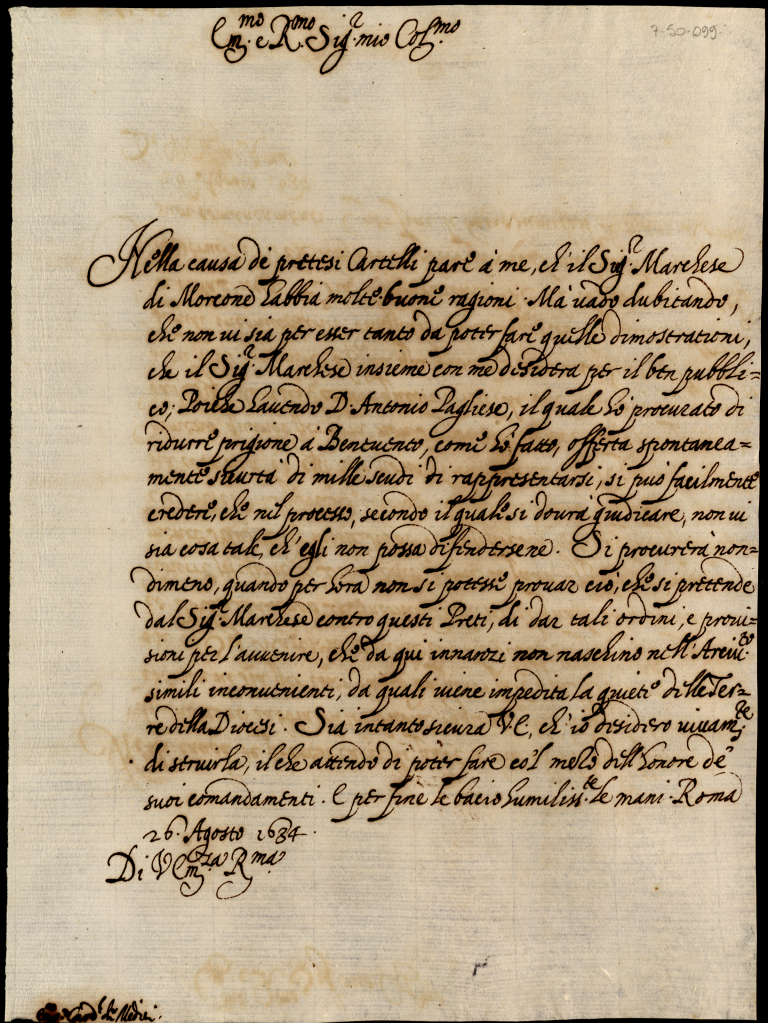 Em.^mo e R^mo Sig.^r mio Col.^mo
7-50-099
Nella causa dè pretesi Cartelli pare à me, ch'il Sig.^r Marchese
di Morcone habbia molte buone ragioni. Mà vado dubitando,
che non vi sia per esser tanto da poter fare quelle dimostrationi,
che il Sig.^r Marchese insieme con me desidera per il ben pubbli=
co; Poiche havendo D. Antonio Pagliese, il quale hò procurato di
ridurre prigione à Benevento, come hò fatto, offerta spontanea=
mente sicurtà di mille scudi di rappresentarsi, si può facilmente
credere, che nel processo, secondo il quale si dourà giudicare, non vi
sia cosa tale, ch'egli non possa difendersene. Si procurerà non=
dimeno, quando per hora non si potesse prouar ciò, che si pretende
dal Sig.^r Marchese contro questi Preti, di dar tali ordini, e proui=
sioni per l'auuenire, che da qui innanzi non naschino nell'Arciu.^to
simili inconuenienti, da quali uiene impedita la quiete delle Ter=
re della Diocesi. Sia intanto sicura V.E., ch'io desidero uiuam.^te
di seruirla, il che attendo di poter fare co'l mezo dell'honore de'
suoi comandamenti. E per fine le bacio humiliss.^te le mani. Roma
26. Agosto 1634.
Di V. Em.^za R.^ma
Card.^l de Medici.